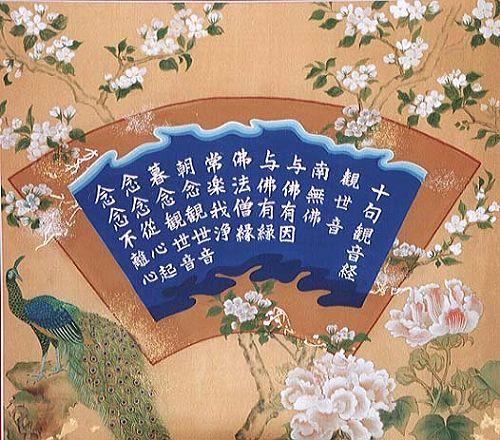 十句観音経
観世音
南無佛
与佛有因
与佛有縁
佛法僧縁
常楽我浄
朝念観世音
暮念観世音
念念從心起
念念不離心